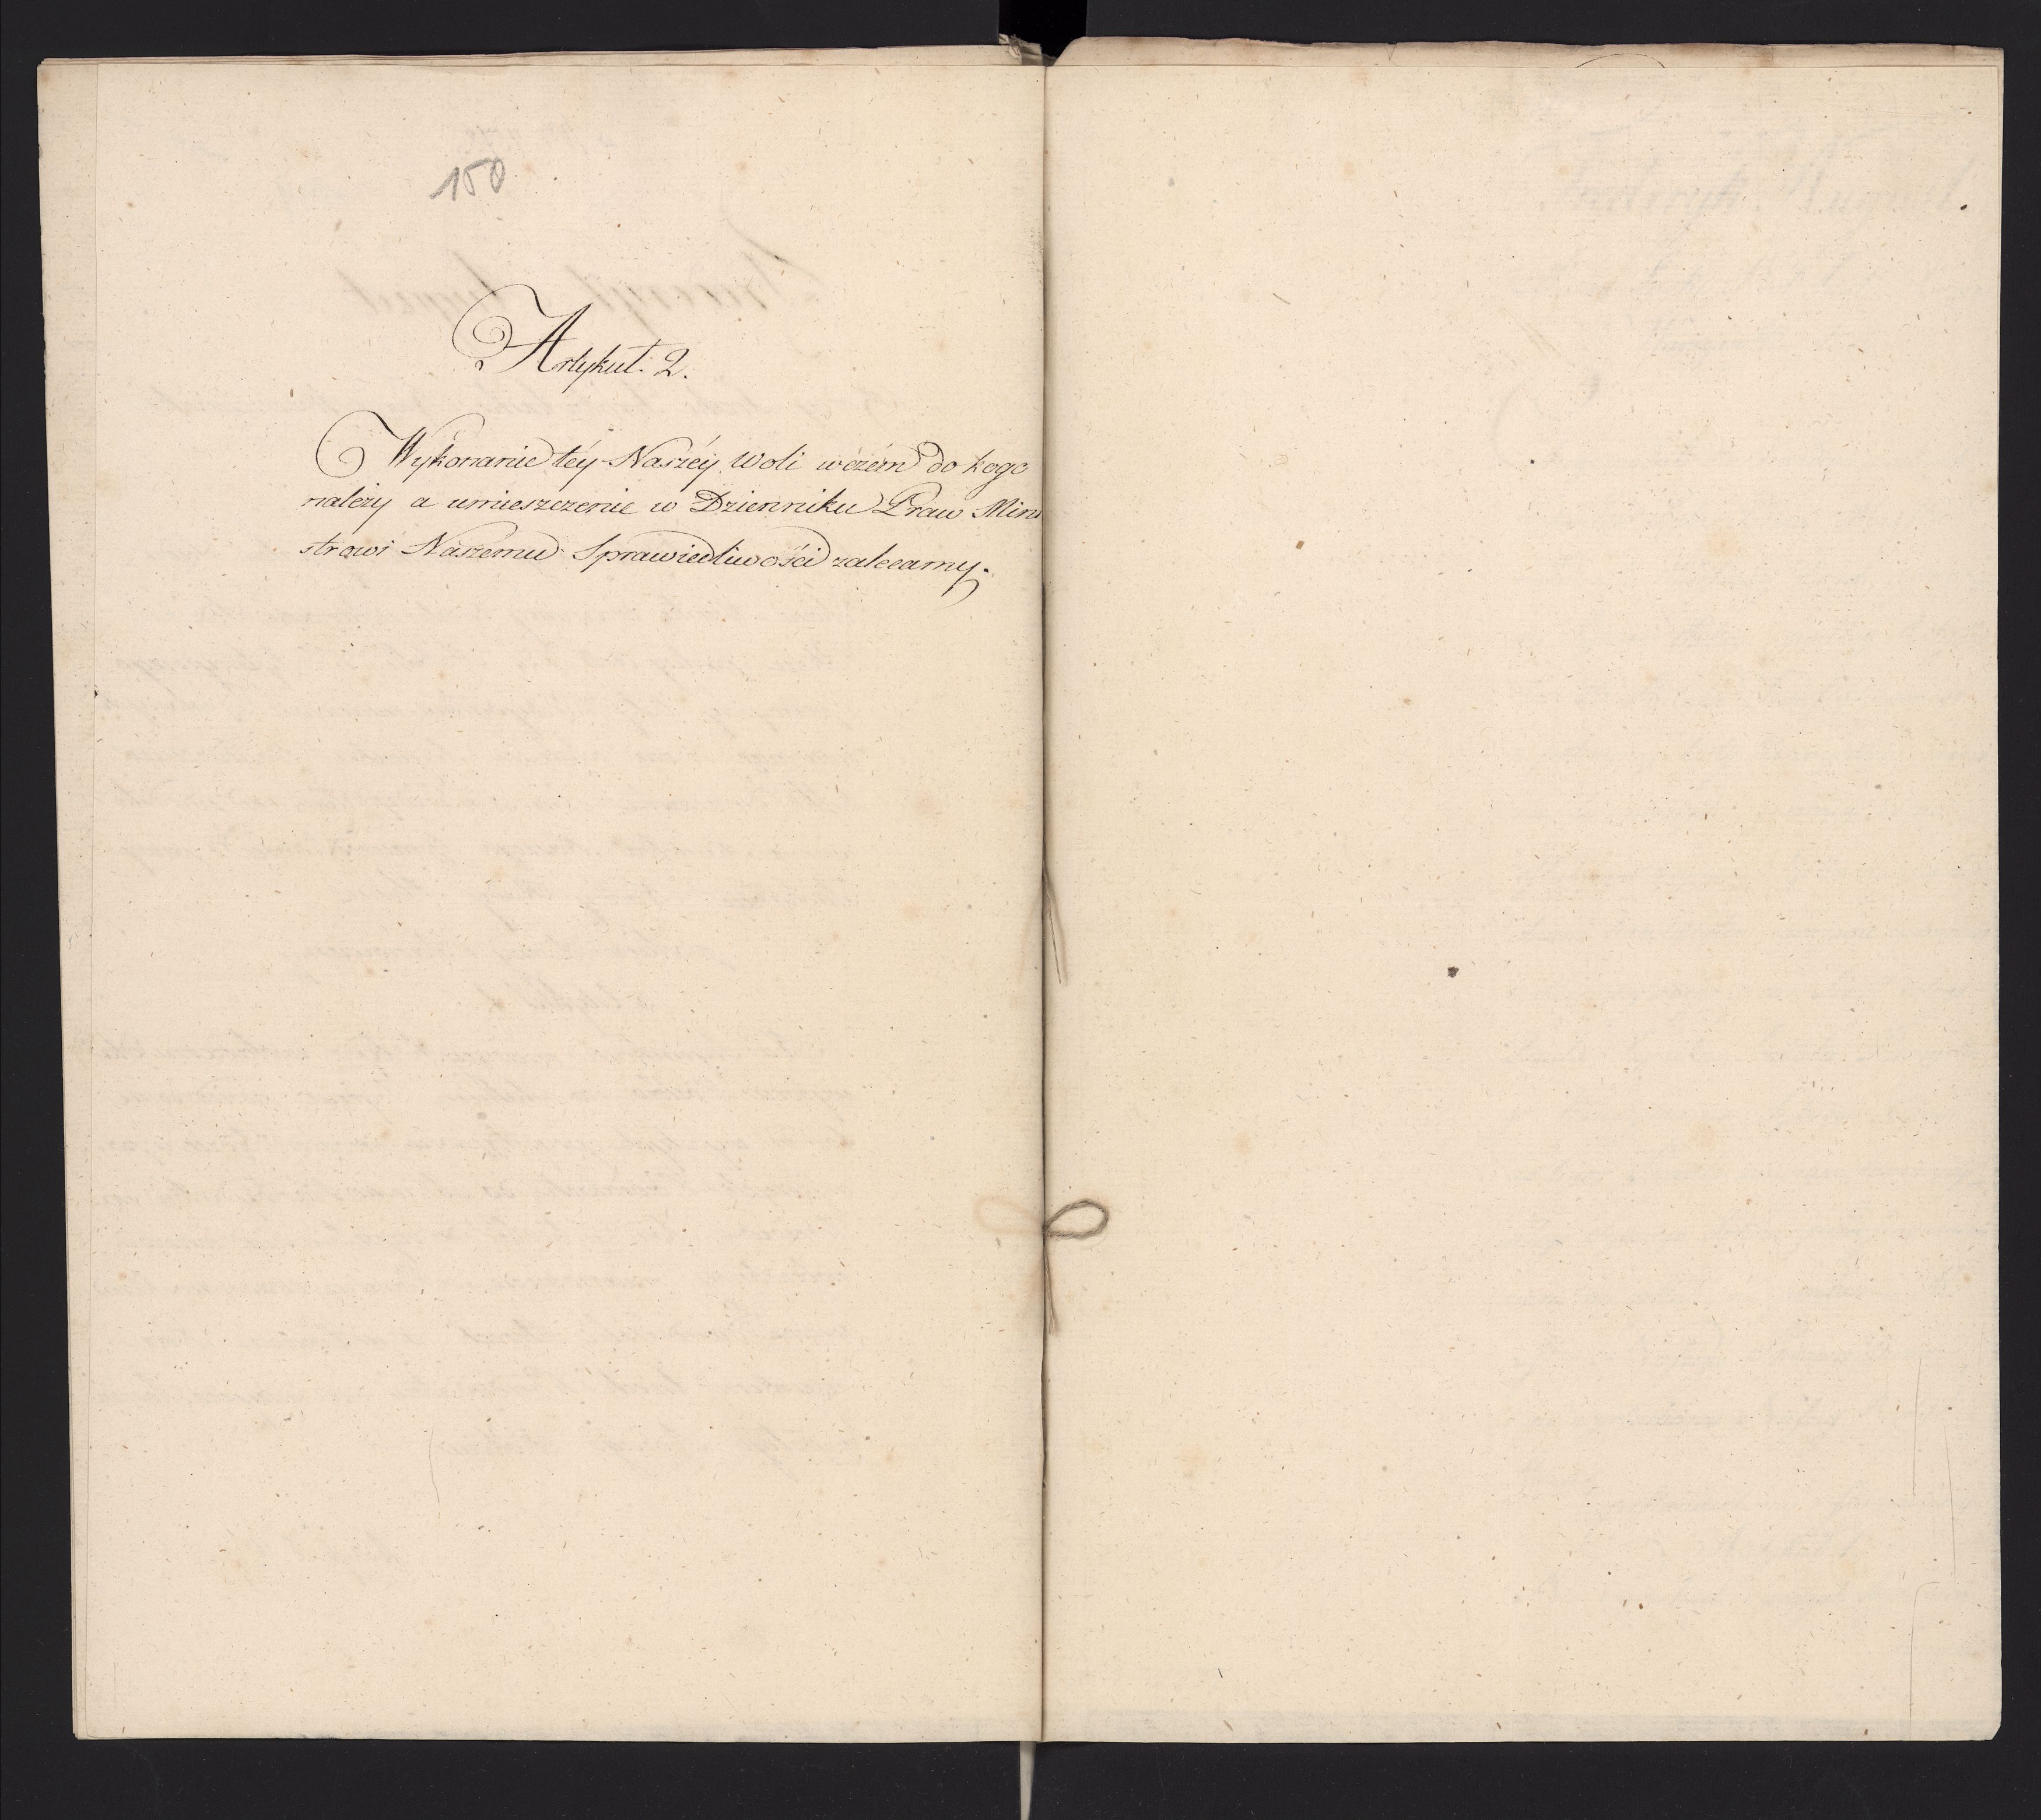 150
Artykuł. 2.
Wykonanie téy Naszéy Woli wczém do kogo
należy a umieszczenie w Dzienniku Praw Mini
strowi Naszemu Sprawiedliwości zalecamy.